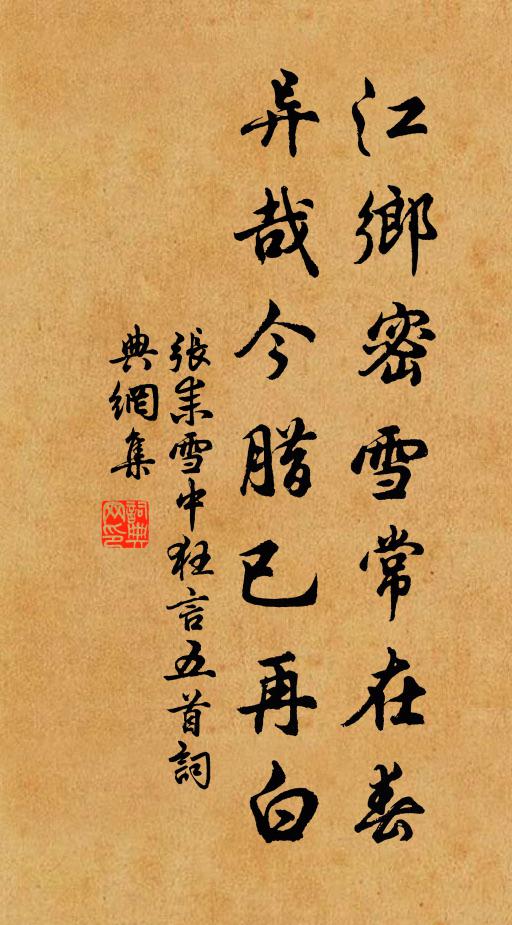 江鄉密雪常在春
异哉今腊已再白
張耒雪中狂言五首詞
典網集
詞典網印